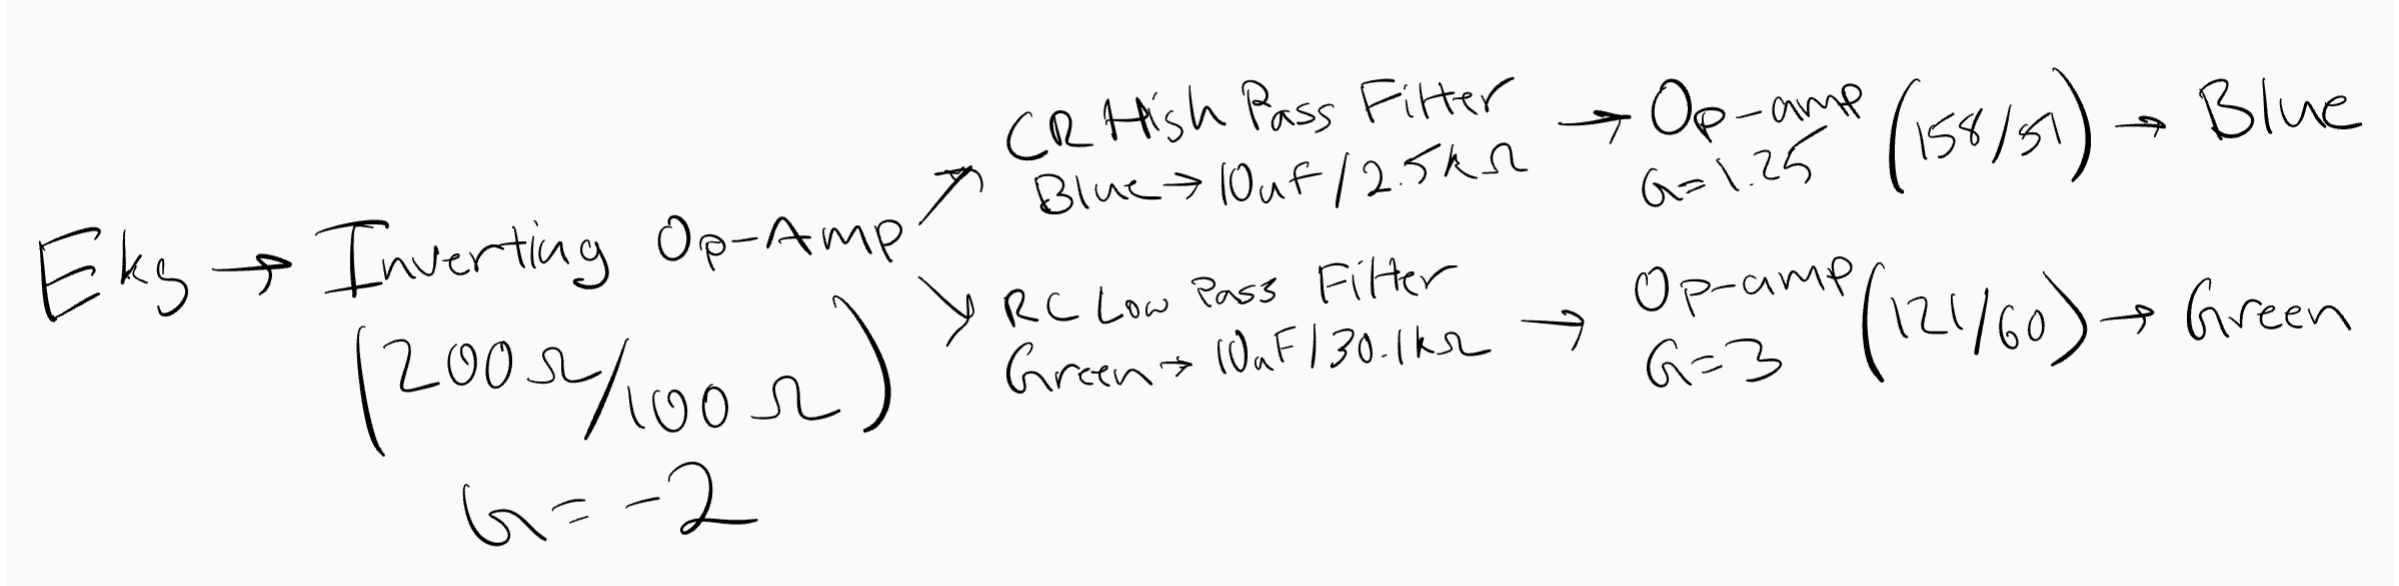 Ekg → Inverting Op-Amp
(200Ω/100Ω)
G=-2
CR High Pass Filter
Blue → 10uF/2.5kΩ
→ Op-amp (158/51) → Blue
G=1.25
RC Low Pass Filter
Green → 10uF/30.1kΩ
→ Op-amp (121/60) → Green
G=3